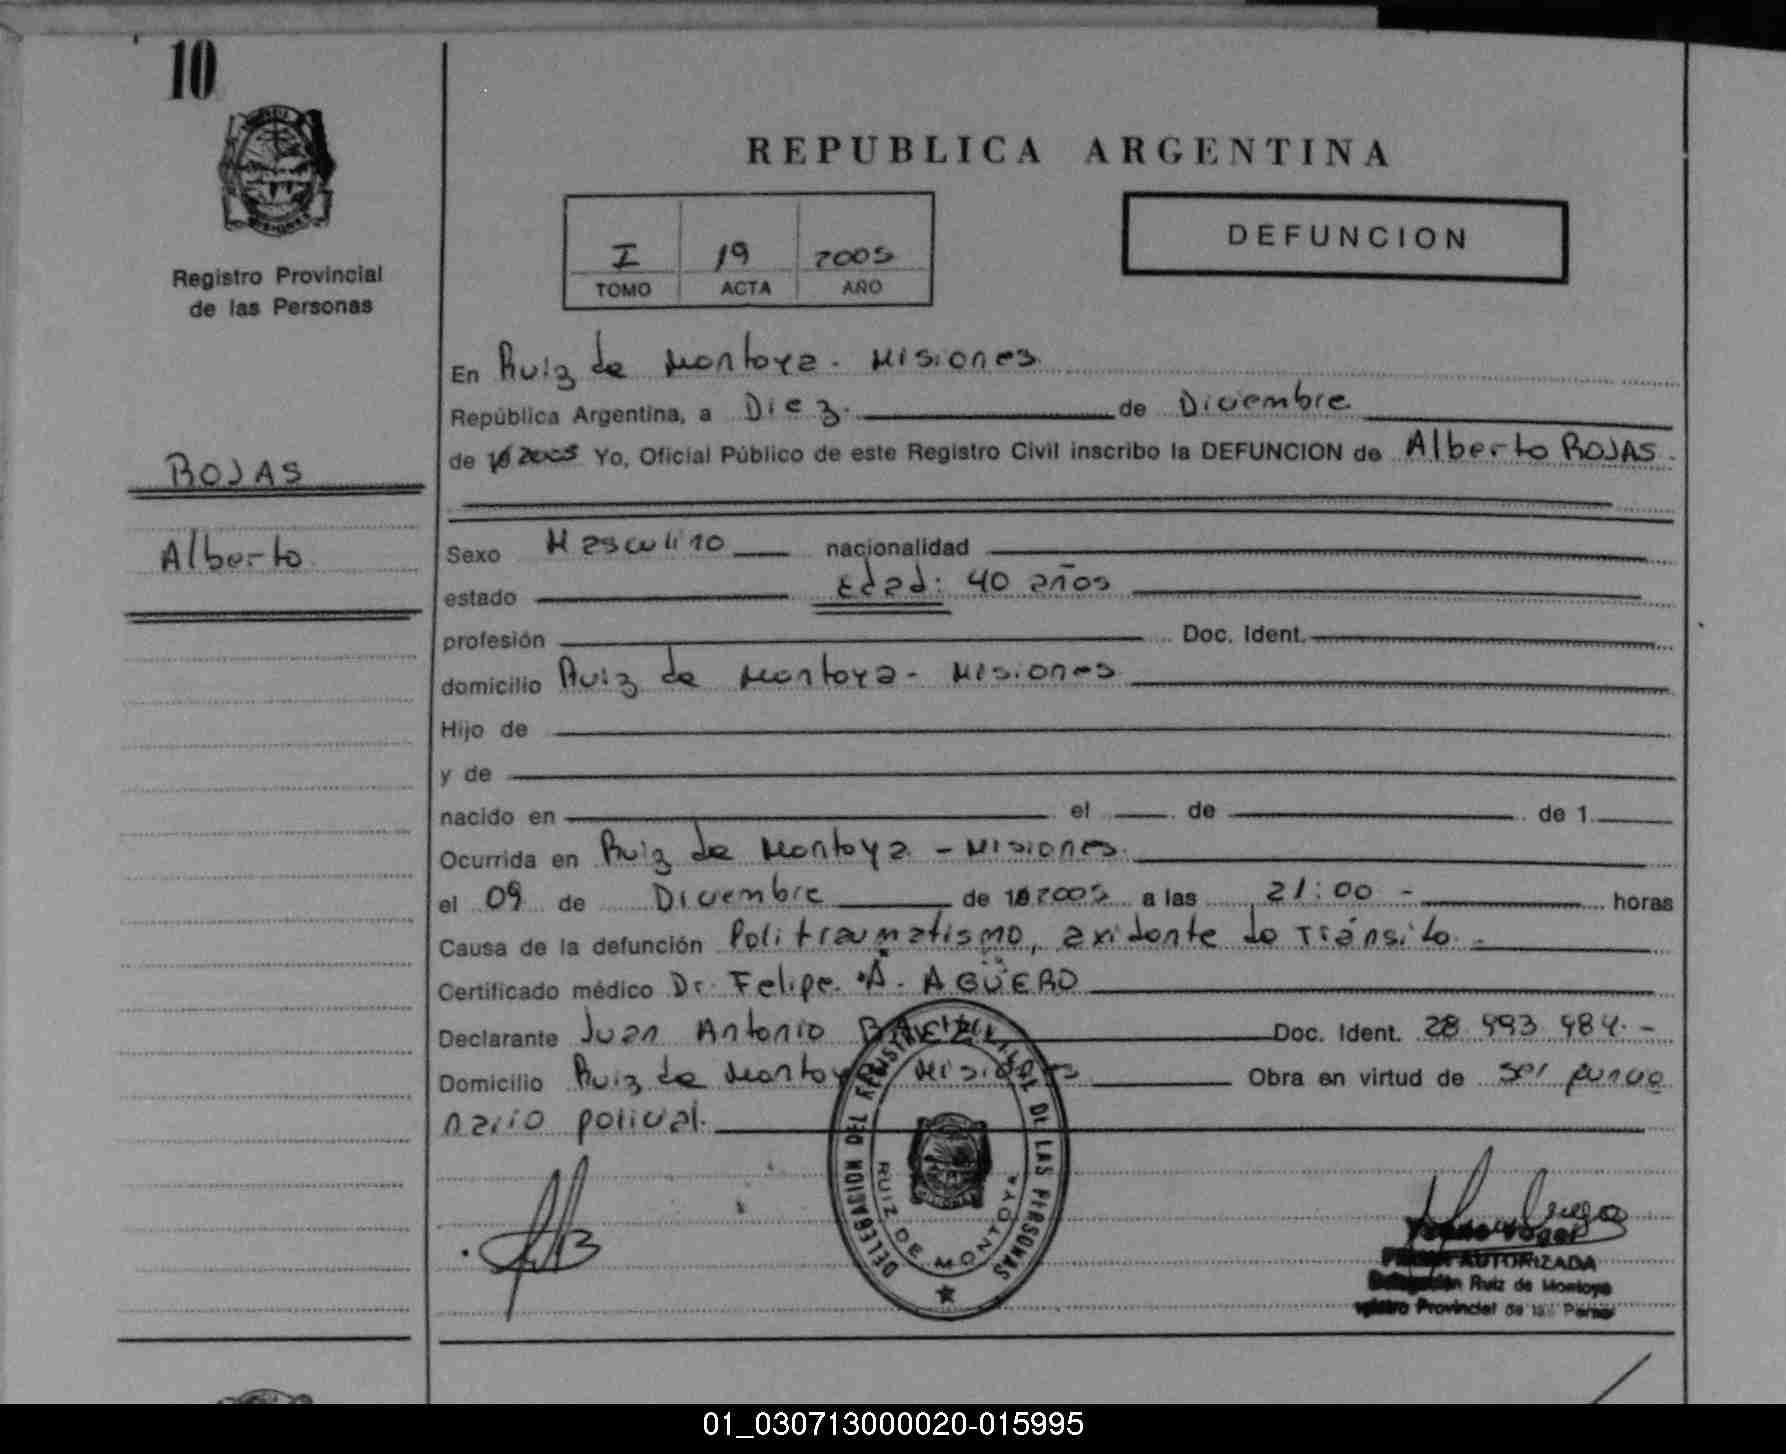 10
Registro Provincial
de las Personas
REPUBLICA ARGENTINA
I 19 2005
TOMO ACTA AÑO
DEFUNCION
ROJAS
Alberto
En Ruiz de Montoya - Misiones
República Argentina, a Diez de Diciembre
de 2005 Yo, Oficial Público de este Registro Civil inscribo la DEFUNCION de Alberto ROJAS
Sexo Masculino nacionalidad
estado Edad: 40 años
profesión Doc. Ident.
domicilio Ruiz de Montoya - Misiones
Hijo de
y de
nacido en el de de 1
Ocurrida en Ruiz de Montoya - Misiones
el 09 de Diciembre de 2005 a las 21:00 - horas
Causa de la defunción Politraumatismo, axidente de Tránsito.
Certificado médico Dr. Felipe A. AGÜERO
Declarante Juan Antonio Doc. Ident. 28.493.484.-
Domicilio Ruiz de Montoya Misiones Obra en virtud de ser funcio
nario policial.
DELEGACION DEL REGISTRO PROVINCIAL DE LAS PERSONAS
RUIZ DE MONTOYA
MISIONES
AUTORIZADA
Delegación Ruiz de Montoya
Registro Provincial de las Personas
01_030713000020-015995